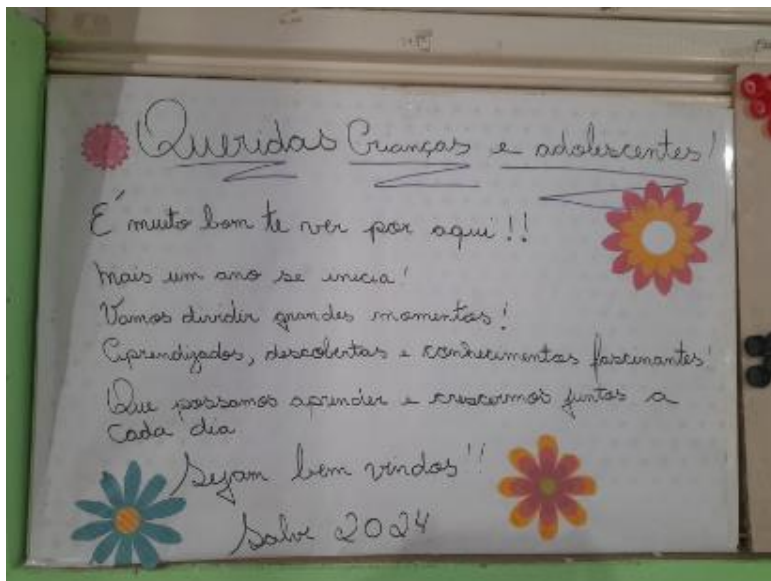 Queridas Crianças e adolescentes!
É muito bom te ver por aqui!!
Mais um ano se inicia!
Vamos dividir grandes momentos!
Aprendizados, descobertas e conhecimentos fascinantes!
Que possamos aprender e crescermos juntos a
cada dia
Sejam bem vindos!!
Salve 2024